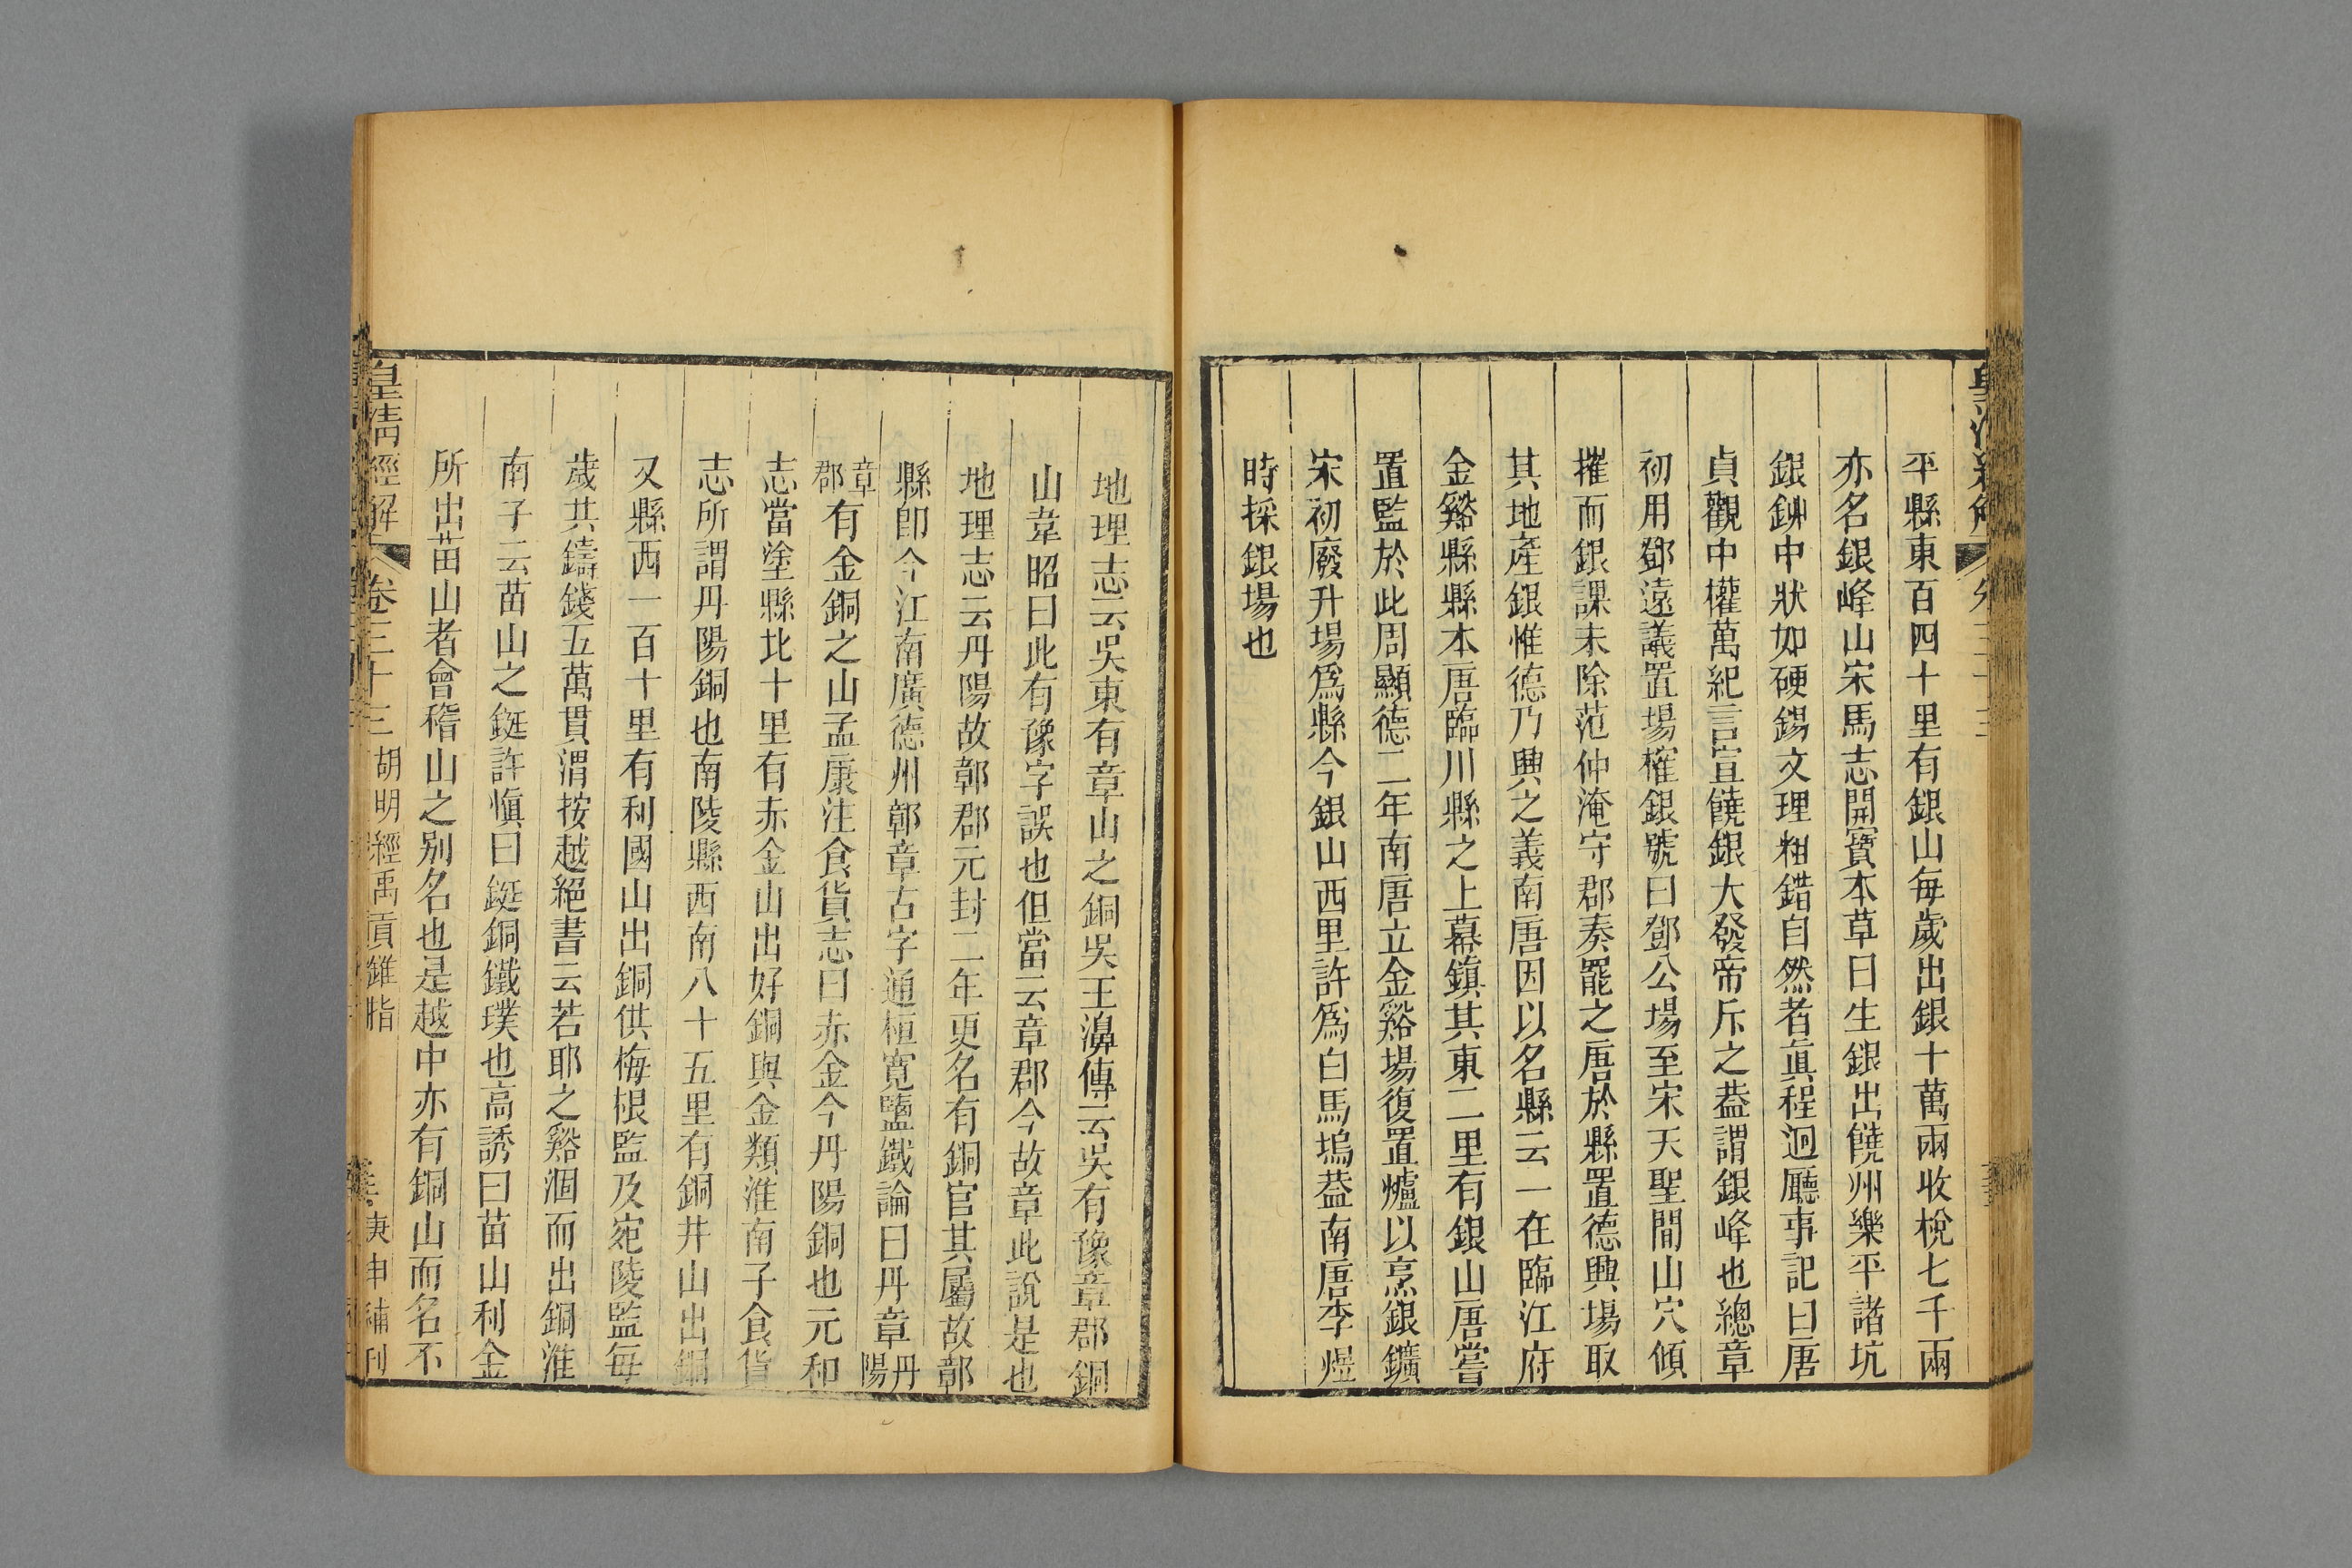 平縣東百四十里有銀山每歲出銀十萬兩收稅七千兩
亦名銀峰山宋馬志開寶本草曰生銀出饒州樂平諸坑
銀鉚中狀如硬錫文理粗錯自然者真程迥廳事記曰唐
貞觀中權萬紀言宣饒銀大發帝斥之葢謂銀峰也總章
初用鄧遠議置場榷銀號曰鄧公場至宋天聖間山穴傾
摧而銀課未除范仲淹守郡奏罷之唐於縣置德興場取
其地產銀惟德乃興之義南唐因以名縣云一在臨江府
金谿縣縣本唐臨川縣之上幕鎮其東二里有銀山唐嘗
置監於此周顯德二年南唐立金谿場復置爐以烹銀鑛
宋初廢升場爲縣今銀山西里許爲白馬塢葢南唐李煜
時採銀場也
地理志云吳東有章山之銅吳王濞傳云吳有豫章郡銅
山韋昭曰此有豫字誤也但當云章郡今故章此說是也
地理志云丹陽故鄣郡元封二年更名有銅官其屬故鄣
縣卽今江南廣德州鄣章古字通桓寬鹽鐵論曰丹章丹陽
章郡有金銅之山孟康注食貨志曰赤金今丹陽銅也元和
志當塗縣北十里有赤金山出好銅與金類淮南子食貨
志所謂丹陽銅也南陵縣西南八十五里有銅井山出銅
又縣西一百十里有利國山出銅供梅根監及宛陵監每
歲共鑄錢五萬貫渭按越絕書云若耶之谿涸而出銅淮
南子云苗山之鋌許愼曰鋌銅鐵璞也高誘曰苗山利金
所出苗山者會稽山之別名也是越中亦有銅山而名不
皇淸經解 卷三十三 胡明經禹貢錐指 庚申補刊